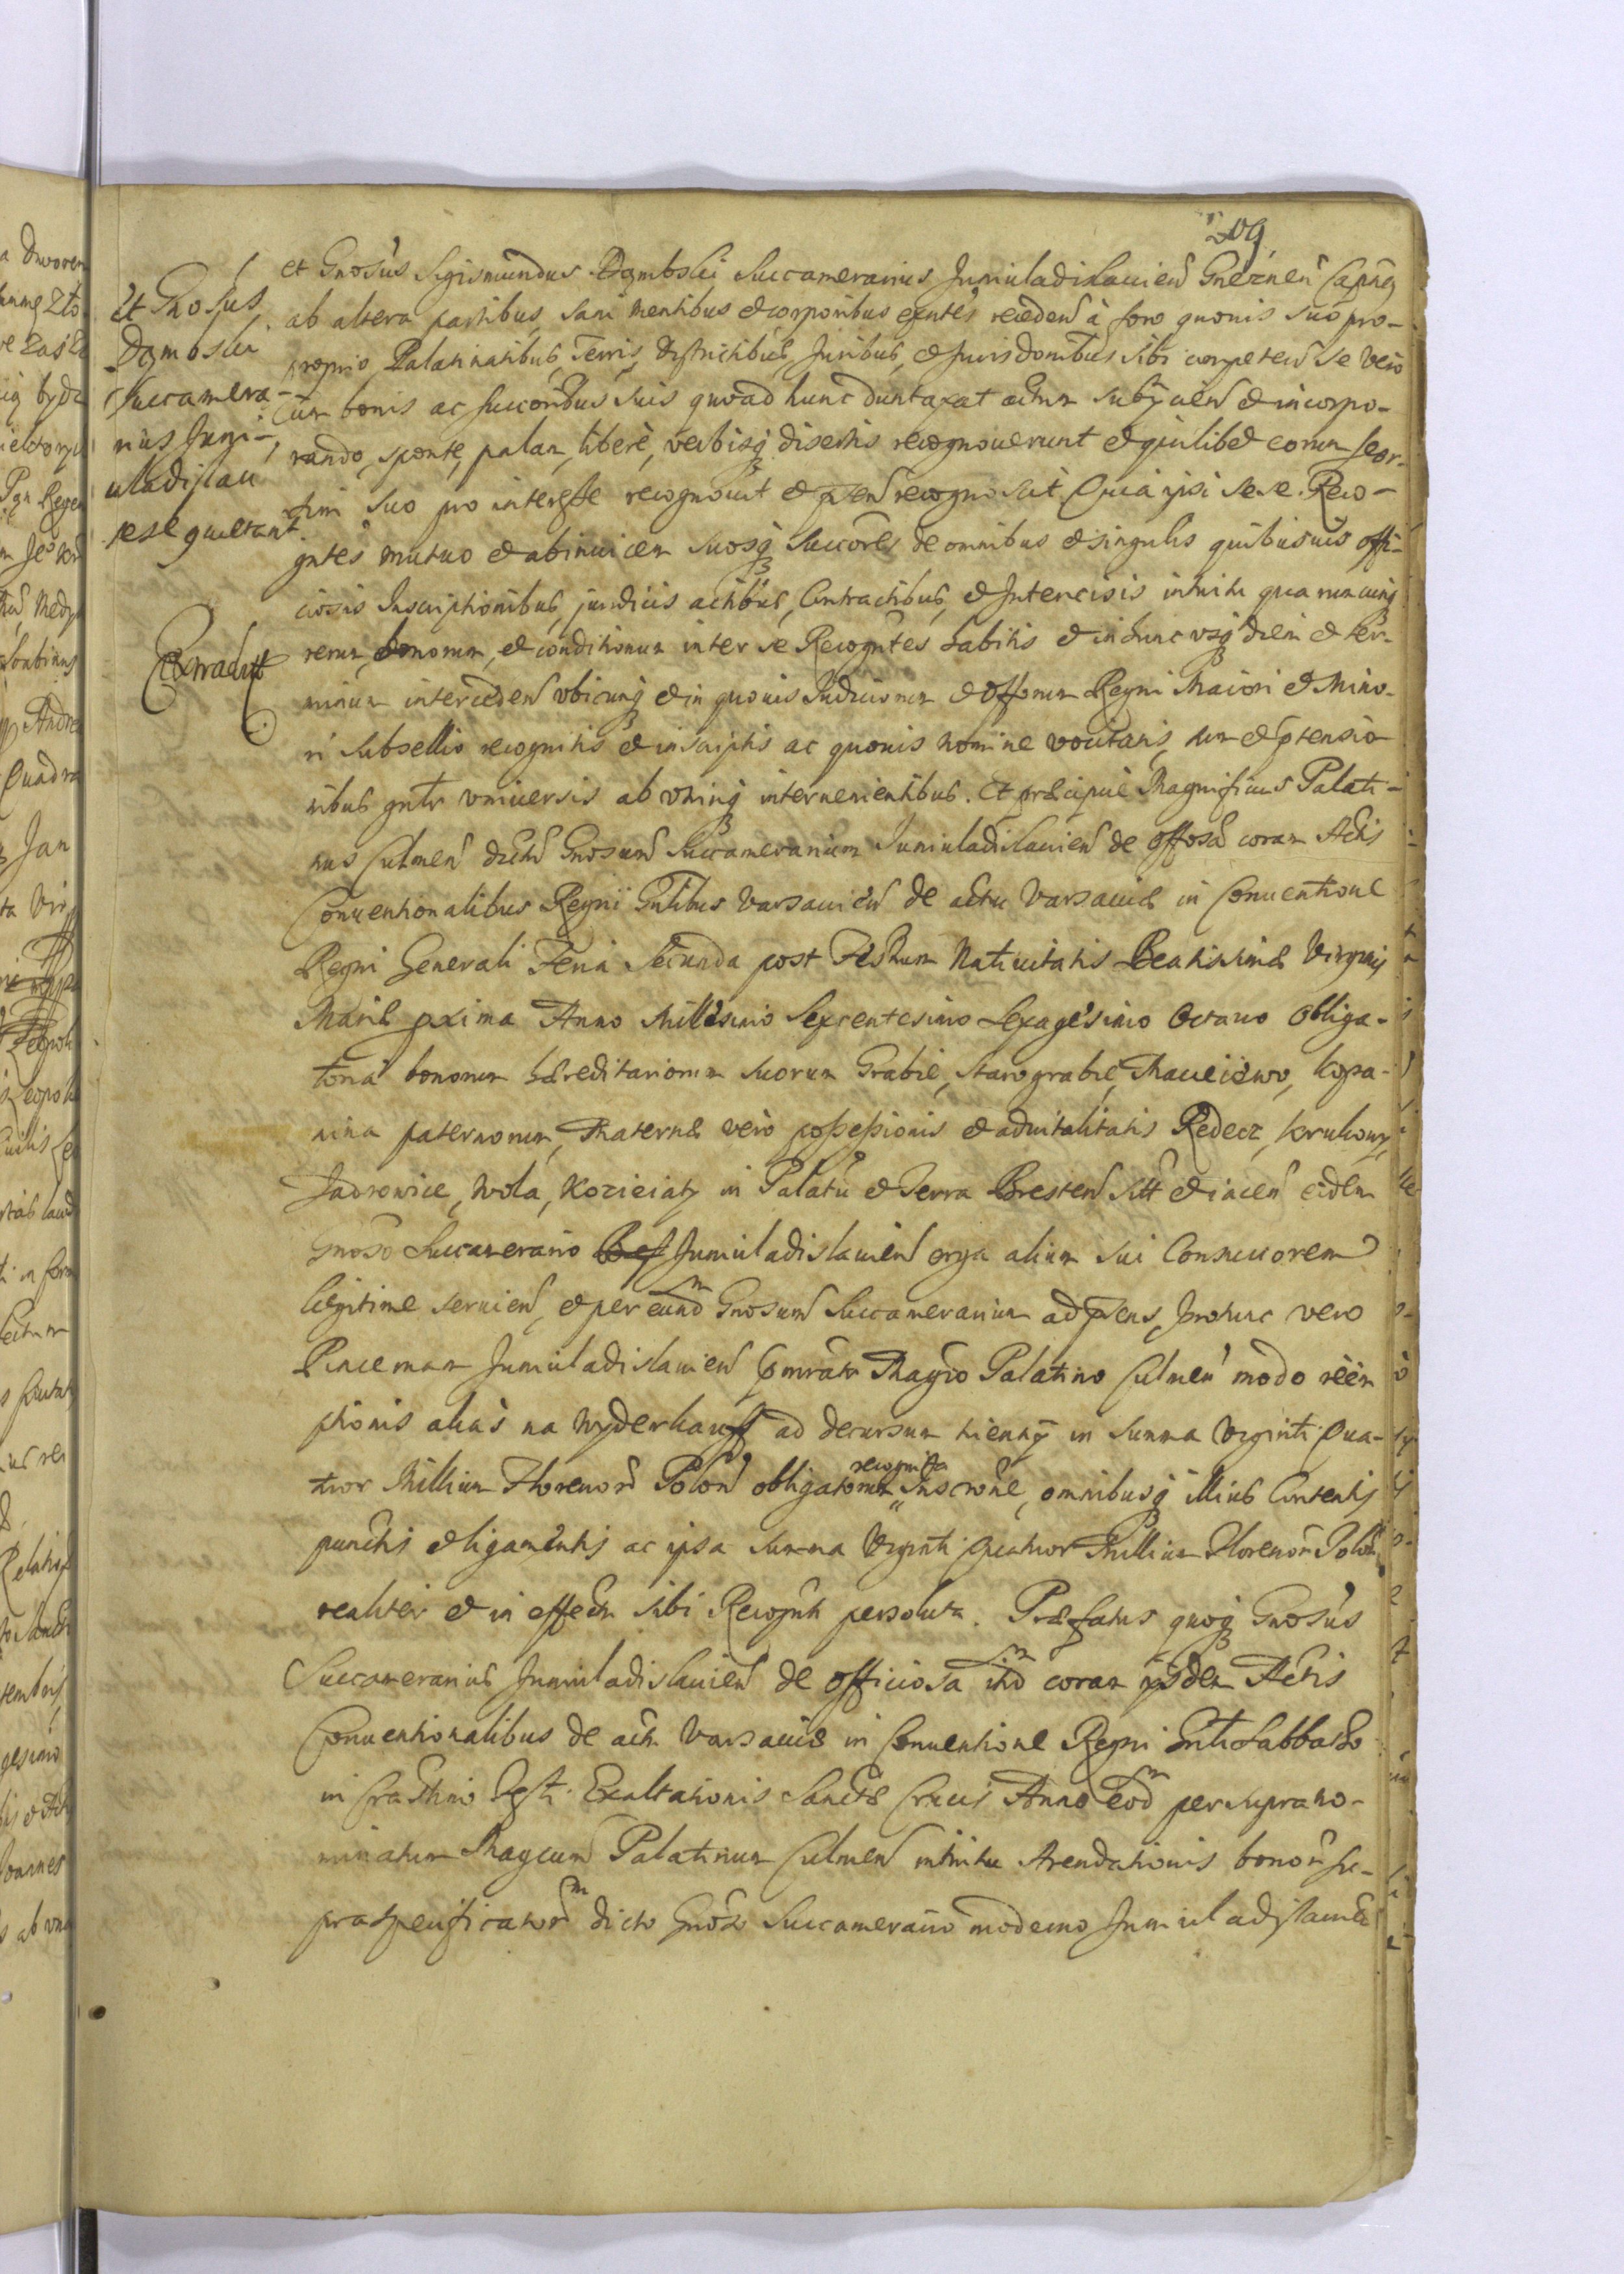 209
Et Gnosus
Dąmbski
Succamera-
rius Juni-
uladislau
sese quietant.
Extradit
et Gnosus Sigismundus Dąmbski Succamerarius Juniuladislauien Gneznen Capneq
ab altera partibus, sani mentibus et corporibus exntes receden à foro quouis suo pro-
proprio Palatinatibus, Terris, Districtibus, Juribus, et Jurisdonibus sibi competen se vero
cum bonis ac succoribus suis quoad hunc duntaxat actum subijcien et incorpo-
rando, sponte, palam, liberè, verbisq disertis recognouerunt et quilibet eorum seor-
sim suo pro interesse recognouit et psen recognoscit Quia ipsi sese Reco-
gntes mutuo et abinuicem suosq succores de omnibus et singulis quibusuis offi-
ciosis Inscriptionibus, judicijs actibus, Contractibus, et Intercisis intuitu quarumcunq
rerum, bonorum, et conditionum inter se Recogntes habitis et in hunc vsq diem et ter-
minum interceden vbicunq et in quouis Judiciorum et Offorum Regni Maiori et Mino-
ri subsellio recognitis et inscriptis ac quouis nomine vocitatis, cum et ptensio-
nibus gnlr vniuersis ab vtrinq interuenientibus. Et præcipue Magnificus Palati-
nus Culmen dictu Gnosum Succamerarium Juniuladislauien de offosa coram Actis
Conuentionalibus Regni Gnlibus Varsauien de actu Varsauiæ in Conuentione
Regni Generali Feria Secunda post Festum Natiuitatis Beatissimæ Virginis
Mariæ pxima Anno Millesimo Sexcentesimo Sexagesimo Octauo Obliga-
toria bonorum hæreditariorum suorum Grabie, Starograbie, Macieiewo, Kopa-
nina paternorum, Maternæ vero possessionis et aduitalitatis Redecz, Krukowy,
Jadrowice, Wola, Kozieiaty in Palatu et Terra Bresten sitt et iacen eidem
Gnoso Succamerario Juniuladislauien erga alium sui Consuccorem
legitime seruien, et per eund Gnosum Succamerarium ad psens, protunc vero
Pincernam Juniuladislauien Magco Palatino Culmen modo reem
ptionis alias na Wyderkauff ad decursum trienny in summa Viginti Qua-
tuor Millium Florenor Polon obligatorum recognita Inscrone, omnibusq illius Contentis
punctis et ligamentis ac ipsa summa Viginti Quatuor Millium Florenor Polon
realiter et in effectu sibi Recognti persoluta. Præfatus quoq Gnosus
Succamerarius Juniuladislauien de officiosa itid coram ijsdem Actis
Conuentionalibus de actu Varsauiæ in Conuentione Regni Gnli Sabbatho
in Crastino Festi Exaltationis Sanctæ Crucis Anno eod per suprano-
minatum Magcum Palatinum Culmen intuitu Arendationis bonor su-
praspecificator dicto Gnoso Succamerario moderno Juniuladislauien